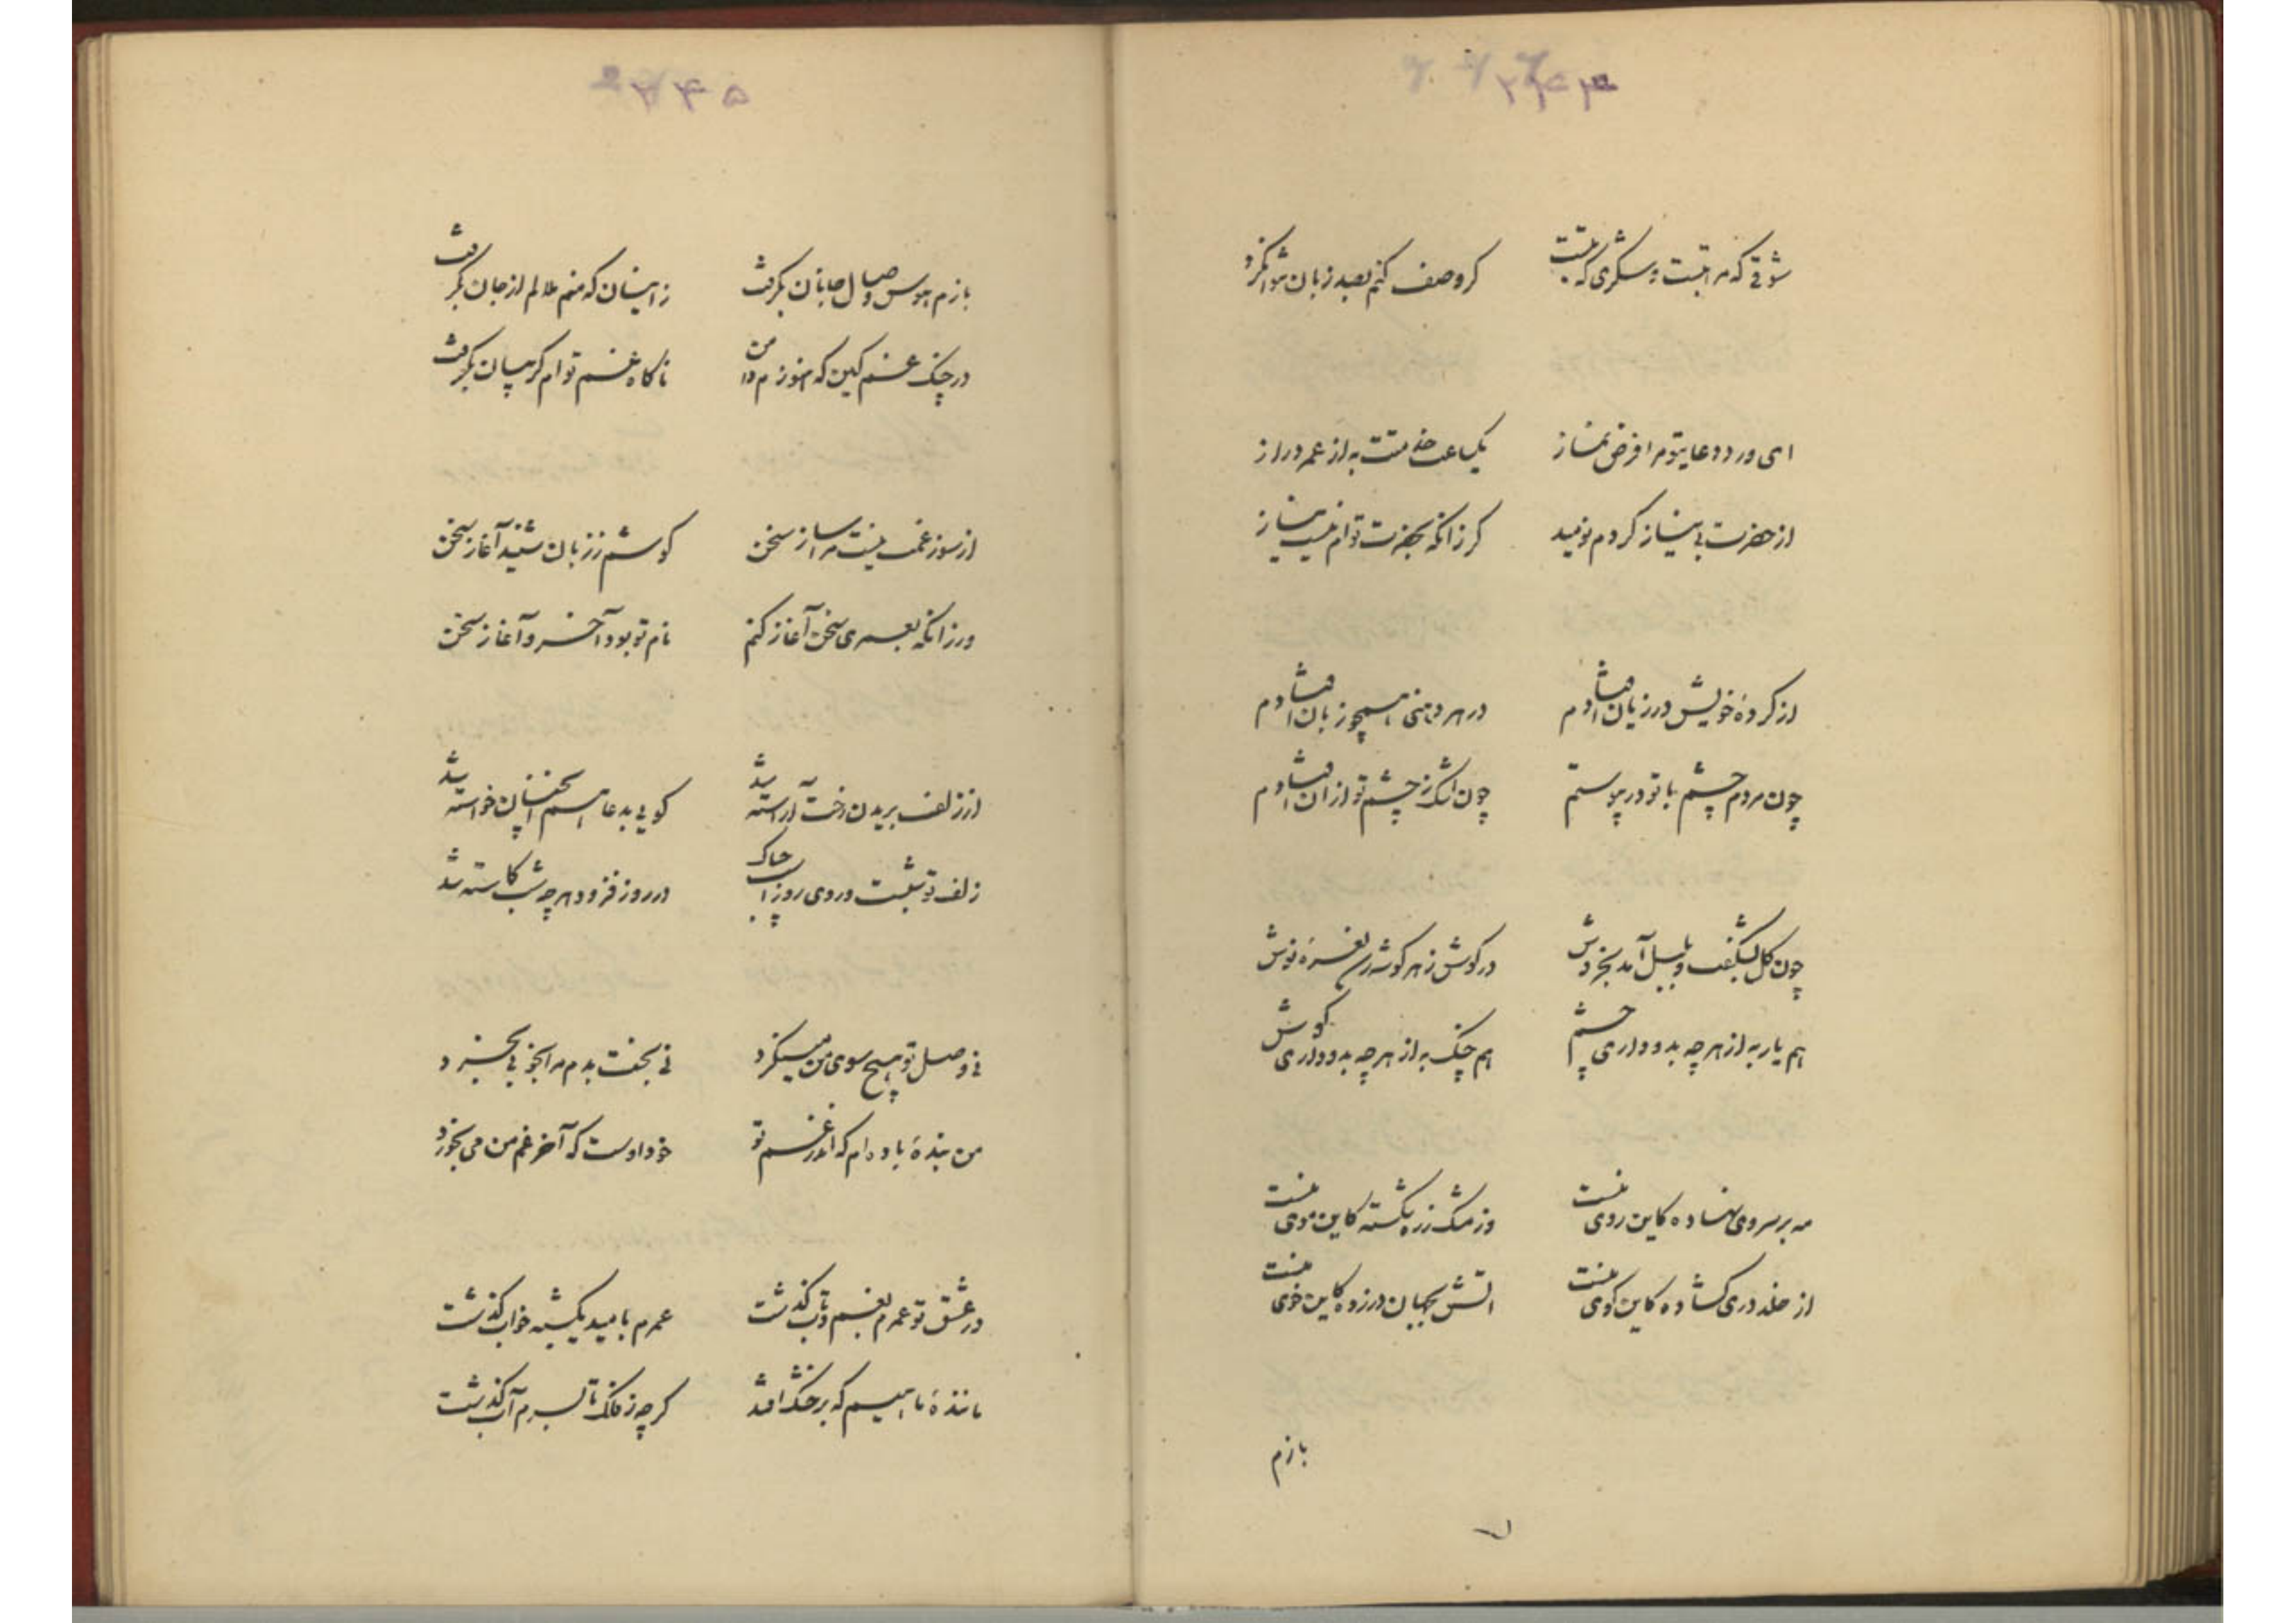 ۲۴۴
شوقی که مراتبست و سکری که بتست کر وصف کنم بصد زبان نتوان کرد
ای ورد دعای تو مرا فرض نماز یکساعت خدمتت به از عمر دراز
از حضرت بی نیاز کردم نومید کر زانکه بحضرت توام نیست نیاز
از کردهٔ خویش در زیان افتادم در هر دهنی همچو زبان افتادم
چون مردم چشم با تو در پیوستم چون اشک ز چشم تو از آن افتادم
چون کل بشکفت و بلبل آمد بخروش در کوش ز هر کوشه رسن نغمهٔ نوش
هم یار به از هر چه بدو داری چشم هم چنک به از هر چه بدو داری کوش
مه بر سر وی نهاده کاین روی منست وز مشک زره بکشته کاین موی منست
از خلد دری کشاده کاین کوی منست اتش بجهان در زده کاین خوی منست
بازم
۲۴۵
بازم هوس وصال جانان بکرفت زانسان که منم ملالم از جان بکرفت
در چنک غم کین که هنوزم دامن ناکاه غم توام کریپان بکرفت
از سوز غمت نیست مرا ساز سخن کوشم ز زبان نشنید آغاز سخن
ور زانکه بعمری سخن آغاز کنم نام تو بود آخر و آغاز سخن
از زلف بریدن رخت آراسته شد کویی بدعا هم آنچنان خواسته شد
زلف تو شبست و روی روز اپباک در روز فزود هر چه شب کاسته شد
نی وصل تو هیچ سوی من مینکرد نی بخت بدم مرا بجو بی بخرد
من بندهٔ باده ام که اندر غم تو خود اوست که آخر غم من می بخورد
در عشق تو عمرم بغم و تاب کذشت عمرم بامید یکشبه خواب کذشت
مانندهٔ ماهییم که بر خشک افتد کرچه ز فلک تا بسرم آب کذشت